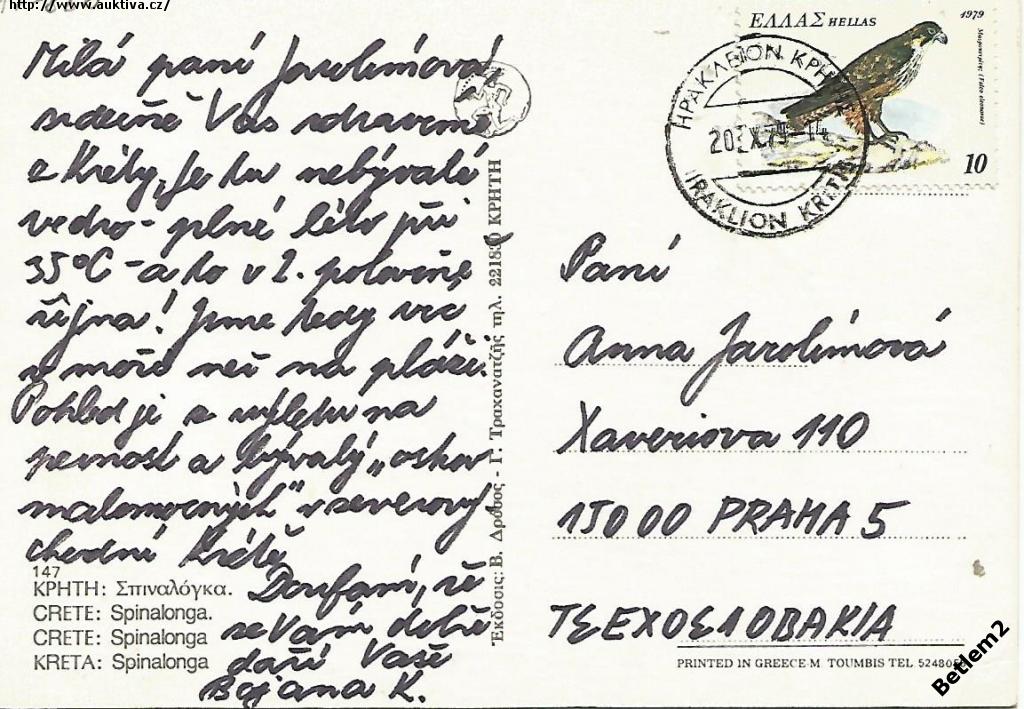 http://www.auktiva.cz/
Milá paní Jarolímová,
srdečně Vás zdravíme
z Kréty, je tu nebývalé
vedro - plné léto při
35°C - a to v 2. polovině
října! Jsme tedy víc
v moři než na pláži.
Pohled je z výletu na
pevnost a bývalý „ostrov
malomocných" v severový-
chodní Krétě
Doufám, že
se Vám dobře
daří Vaše
Bojana K.
147
ΚΡΗΤΗ: Σπιναλόγκα.
CRETE: Spinalonga.
CRETE: Spinalonga
KRETA: Spinalonga
Έκδοσις: Β. Δρόσος - Γ. Τραχανατζής τηλ. 221830 ΚΡΗΤΗ
ΕΛΛΑΣ HELLAS
1979
(Falco eleonorae)
10
ΗΡΑΚΛΕΙΟΝ ΚΡΗΤΗΣ
20 X 79-14
IRAKLION KRITIS
Paní
Anna Jarolímová
Xaveriova 110
15000 PRAHA 5
ΤΣΕΧΟΣΛΟΒΑΚΙΑ
PRINTED IN GREECE-M TOUMBIS TEL
Betlem2